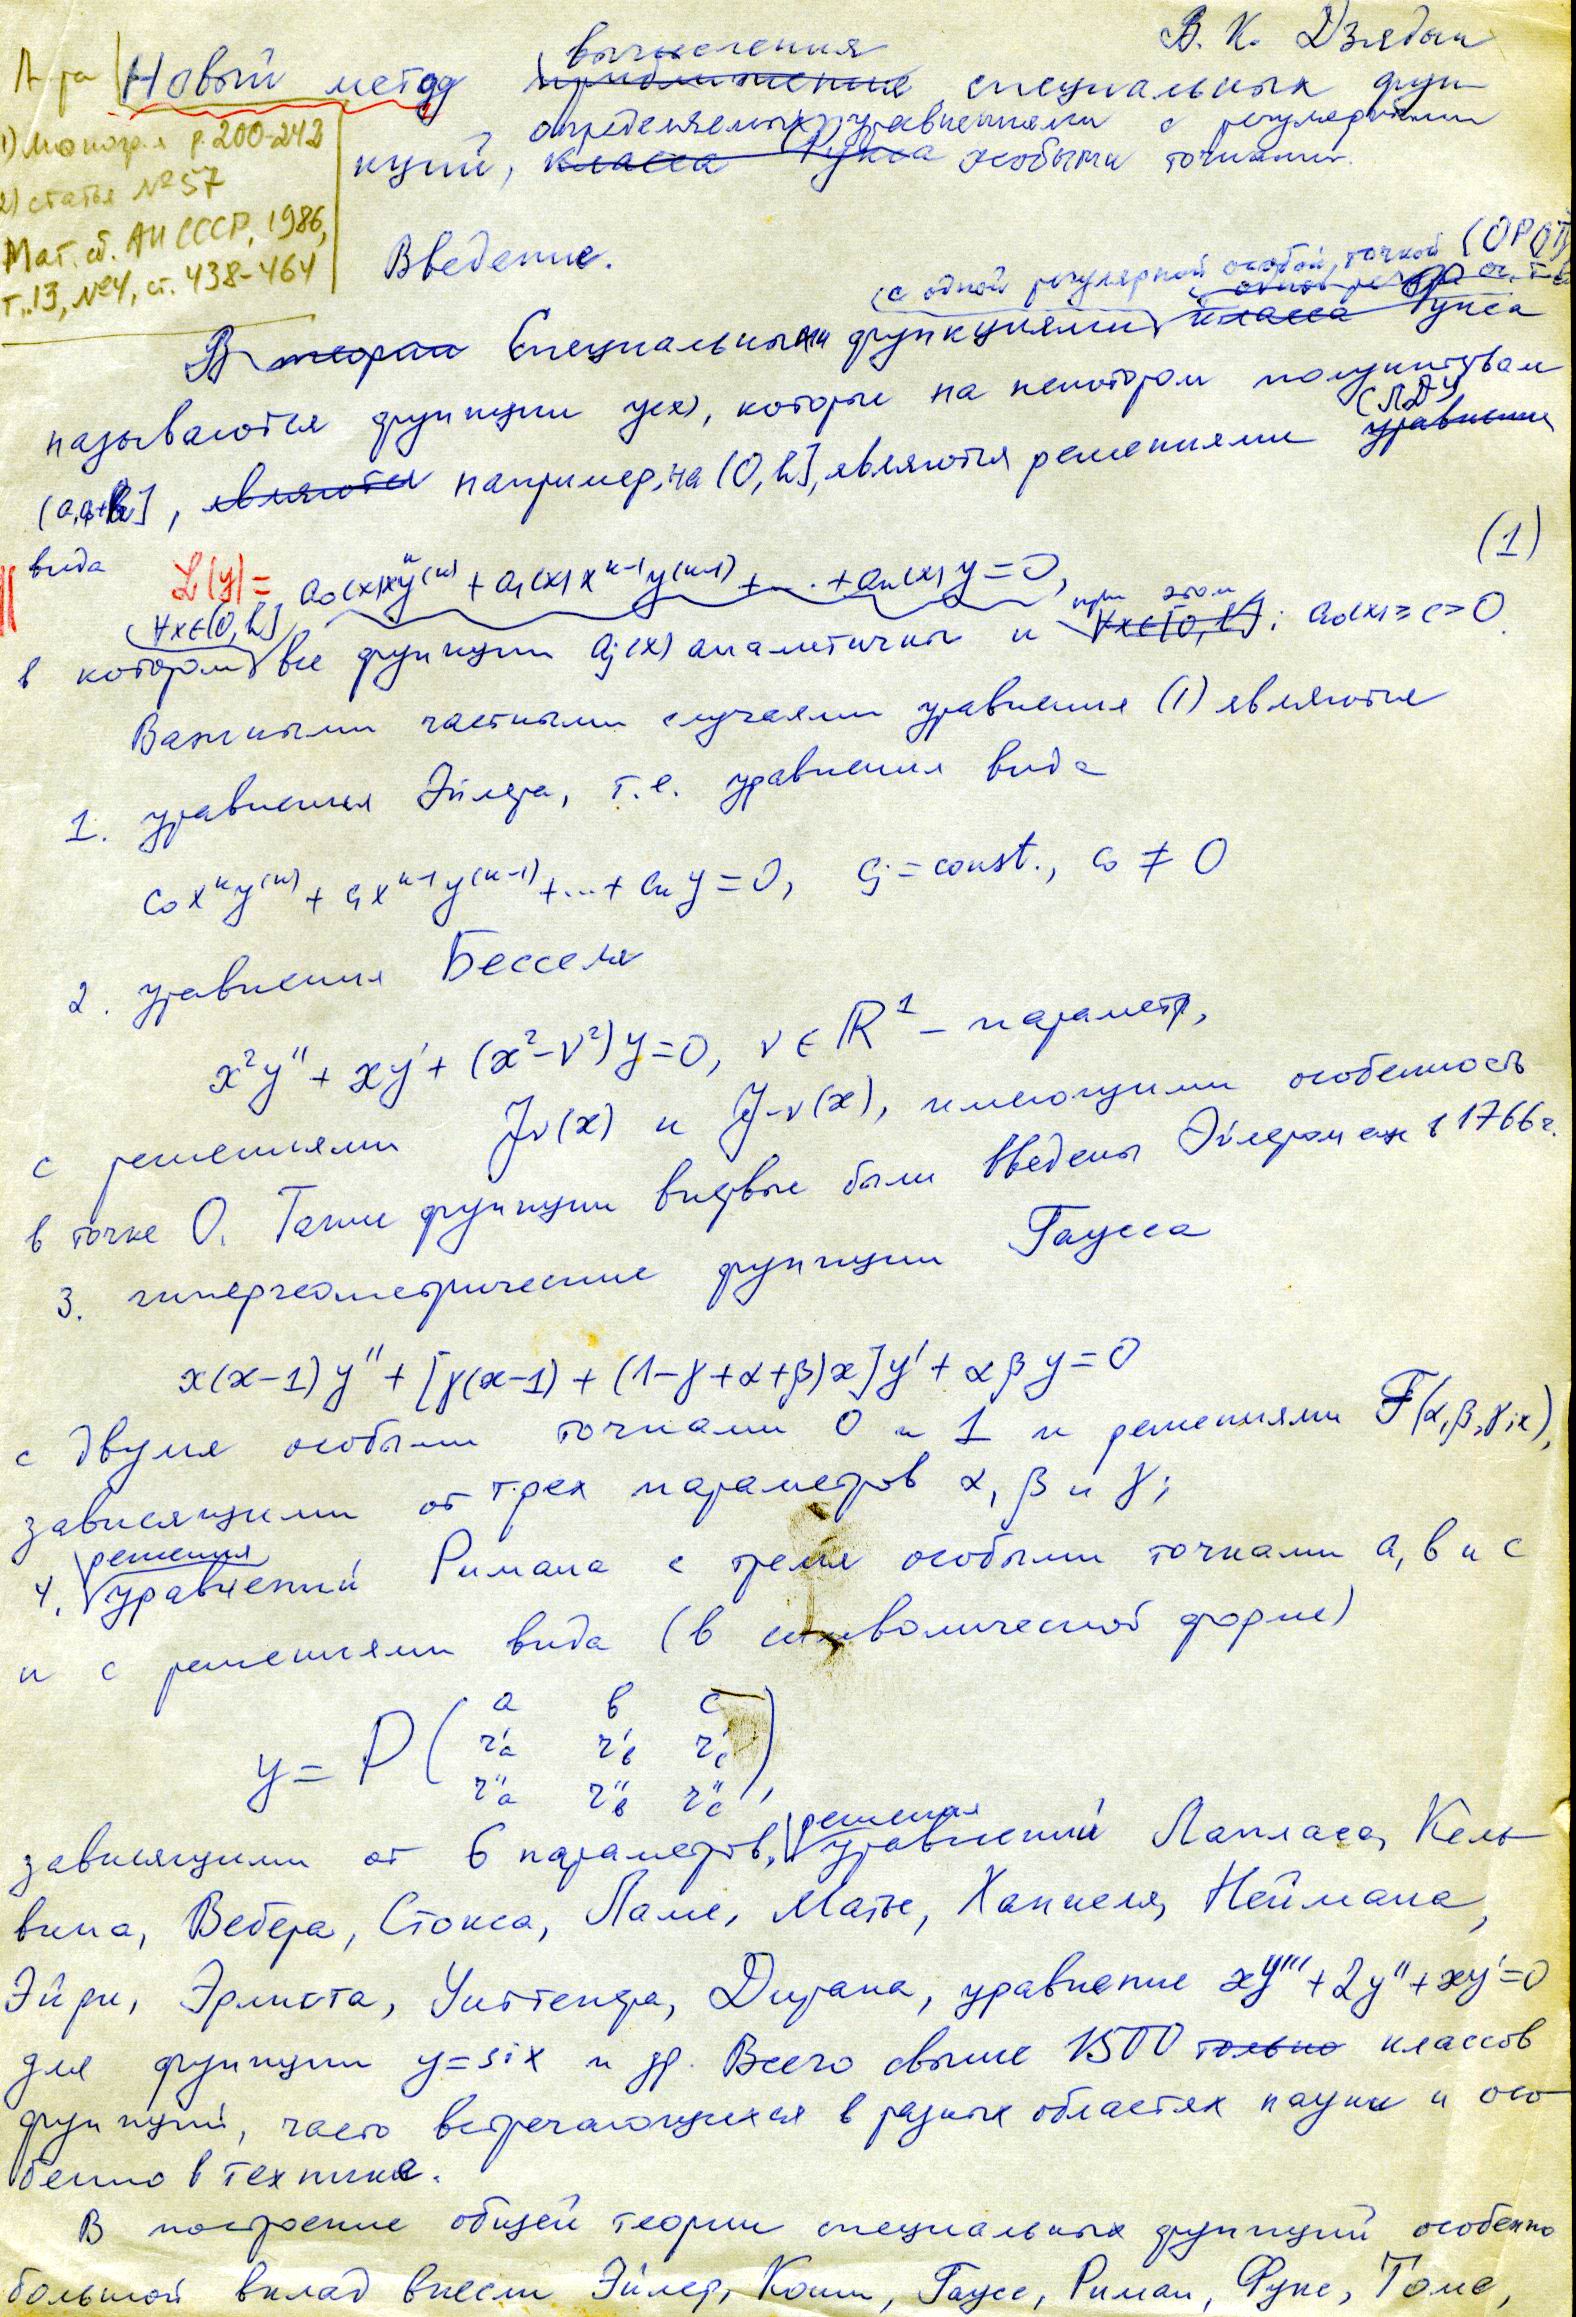 В. К. Дзядык
Л-ра
Новый метод вычисления приближения специальных функ-
определяемых уравнениями с регулярными
ций, класса Фукса особыми точками.
1) Моногр.я р. 200-242
2) статья №57
Мат. сб. АН СССР, 1986,
т.13, №4, ст. 438-464
Введение.
(с одной регулярной особой точкой (ОРОТ)
В теории Специальными функциями класса Фукса
называются функции y(x), которые на некотором полуинтервале
(a, a+h], являются например, на (0, h], являются решениями уравнения (ЛДУ)
вида
L(y) = a₀(x)xⁿy⁽ⁿ⁾ + a₁(x)xⁿ⁻¹y⁽ⁿ⁻¹⁾ + ... + aₙ(x)y = 0, (1)
в котором (∀x∈[0, h]) все функции aⱼ(x) аналитичны и при этом ∀x∈[0, h]: a₀(x) ≥ c > 0.
Важными частными случаями уравнения (1) являются
1. уравнения Эйлера, т.е. уравнения вида
c₀xⁿy⁽ⁿ⁾ + c₁xⁿ⁻¹y⁽ⁿ⁻¹⁾ + ... + cₙy = 0, cⱼ = const., c₀ ≠ 0
2. уравнения Бесселя
x²y'' + xy' + (x² - ν²)y = 0, ν ∈ ℝ¹ - параметр,
с решениями J_ν(x) и J_-ν(x), имеющими особенность
в точке 0. Такие функции впервые были введены Эйлером еще в 1766 г.
3. гипергеометрические функции Гаусса
x(x-1)y'' + [γ(x-1) + (1-γ+α+β)x]y' + αβy = 0
с двумя особыми точками 0 и 1 и решениями F(α, β, γ; x),
зависящими от трех параметров α, β и γ;
4. решения уравнений Римана с тремя особыми точками a, b и c
и с решениями вида (в символической форме)
y = P ( a b c
r'a r'b r'c
r''a r''b r''c ),
зависящими от 6 параметров, решения уравнений Лапласа, Кель-
вина, Вебера, Стокса, Ламе, Матье, Ханкеля, Неймана,
Эйри, Эрмита, Уиттекера, Дирака, уравнение xy''' + 2y'' + xy' = 0
для функции y = six и др. Всего свыше 1500 только классов
функций, часто встречающихся в разных областях науки и осо-
бенно в технике.
В построение общей теории специальных функций особенно
большой вклад внесли Эйлер, Коши, Гаусс, Риман, Фукс, Томе,